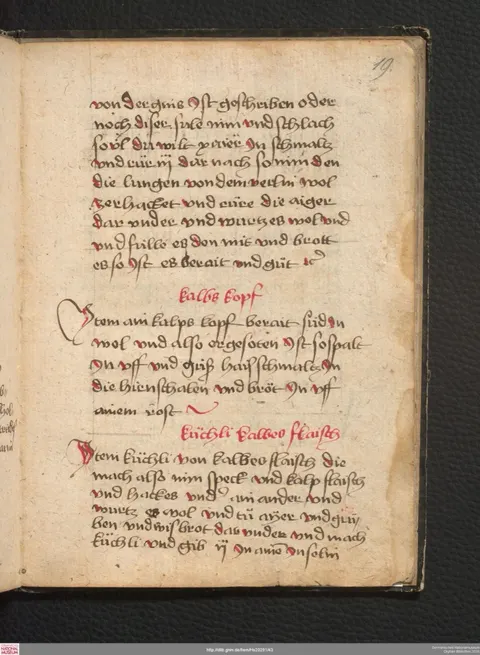 19.
von der gnis Ist geschriben oder
noch diser füle nim vnd schlach
so vil du wilt xayer In schmaltz
vnd rür ÿ dar nach so nim den
die lungen von dem verlin wol
zerhacket vnd rüre die aiger
dar vnder vnd wurtz es wol vnd
vnd fülle es den mit vnd brott
es so Ist es berait vnd güt
kalbs kopf
Item ain kalps kopf berait süd In
wol vnd also er gesoten Ist so spalt
In vff vnd güß haiß schmaltz In
die hirnschalen vnd bröt In vff
ainem rost
küchli kalbes flaisch
Item küchli von kalbes flaisch die
mach also nim speck vnd kalp flaisch
vnd hackes vnder ain ander vnd
wurtz es wol vnd tü ayer vnd grÿ
ben vnd wis brot dar vnder vnd mach
küchli vnd gib ÿ In aine In solin
http://dlib.gnm.de/item/Hs20291/43